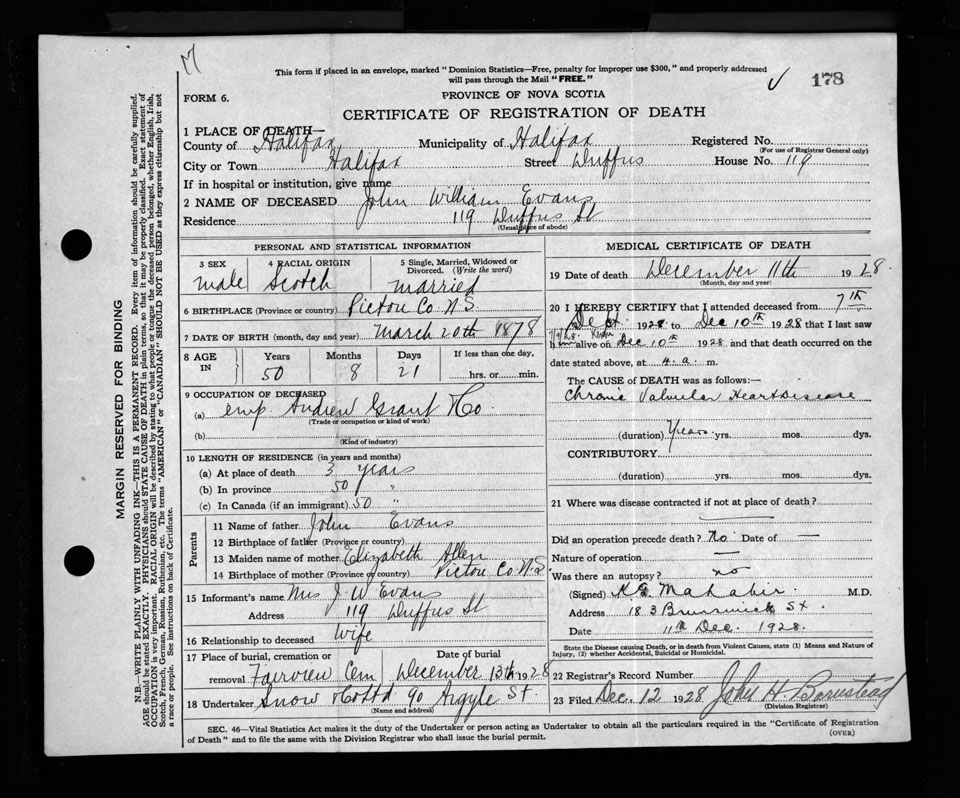 This form if placed in an envelope, marked "Dominion Statistics—Free, penalty for improper use $300," and properly addressed
will pass through the Mail "FREE."
178
FORM 6.
PROVINCE OF NOVA SCOTIA
CERTIFICATE OF REGISTRATION OF DEATH
MARGIN RESERVED FOR BINDING
N.B.—WRITE PLAINLY WITH UNFADING INK—THIS IS A PERMANENT RECORD. Every item of information should be carefully supplied.
AGE should be stated EXACTLY. PHYSICIANS should STATE CAUSE OF DEATH in plain terms, so that it may be properly classified. Exact statement of
OCCUPATION is very important. RACIAL ORIGIN will be described by stating to what people or tongue the deceased person belonged, whether English, Irish,
Scotch, French, German, Russian, Ruthenian, etc. The terms "AMERICAN" or "CANADIAN" SHOULD NOT BE USED as they express citizenship but not
a race or people. See instructions on back of Certificate.
1 PLACE OF DEATH—
County of Halifax Municipality of Halifax Registered No.
(For use of Registrar General only)
City or Town Halifax Street Duffus House No. 119
If in hospital or institution, give name
2 NAME OF DECEASED John William Evans
Residence 119 Duffus St
(Usual place of abode)
PERSONAL AND STATISTICAL INFORMATION
3 SEX male
4 RACIAL ORIGIN Scotch
5 Single, Married, Widowed or Divorced. (Write the word) married
6 BIRTHPLACE (Province or country) Pictou Co. N.S.
7 DATE OF BIRTH (month, day and year) March 20th 1878
8 AGE IN Years 50 Months 8 Days 21 If less than one day, hrs. or min.
9 OCCUPATION OF DECEASED
(a) emp. Andrew Grant & Co.
(Trade or occupation or kind of work)
(b)
(Kind of industry)
10 LENGTH OF RESIDENCE (in years and months)
(a) At place of death 3 years
(b) In province 50 "
(c) In Canada (if an immigrant) 50 "
Parents
11 Name of father John Evans
12 Birthplace of father (Province or country)
13 Maiden name of mother Elizabeth Allen
14 Birthplace of mother (Province or country) Pictou Co. N.S.
15 Informant's name Mrs J. W Evans
Address 119 Duffus St
16 Relationship to deceased Wife
17 Place of burial, cremation or removal Fairview Cem Date of burial December 13th 1928
18 Undertaker Snow & Co Ltd 90 Argyle St.
(Name and address)
MEDICAL CERTIFICATE OF DEATH
19 Date of death December 11th 1928.
(Month, day and year)
20 I HEREBY CERTIFY that I attended deceased from 7th
Sept. 1928 to Dec 10th 1928 that I last saw
h alive on Dec 10th 1928 and that death occurred on the
date stated above, at 4 a. m.
The CAUSE OF DEATH was as follows:—
Chronic Valvular Heart Disease
(duration) Years. yrs. mos. dys.
CONTRIBUTORY
(duration) yrs. mos. dys.
21 Where was disease contracted if not at place of death?
Did an operation precede death? No Date of —
Nature of operation —
Was there an autopsy? no
(Signed) K.G. Mahabir M.D.
Address 183 Brunswick St.
Date 11th Dec. 1928.
State the Disease causing Death, or in death from Violent Causes, state (1) Means and Nature of
Injury, (2) whether Accidental, Suicidal or Homicidal.
22 Registrar's Record Number
23 Filed Dec. 12 1928 John H. Barnstead
(Division Registrar)
SEC. 46—Vital Statistics Act makes it the duty of the Undertaker or person acting as Undertaker to obtain all the particulars required in the "Certificate of Registration
of Death" and to file the same with the Division Registrar who shall issue the burial permit.
(OVER)